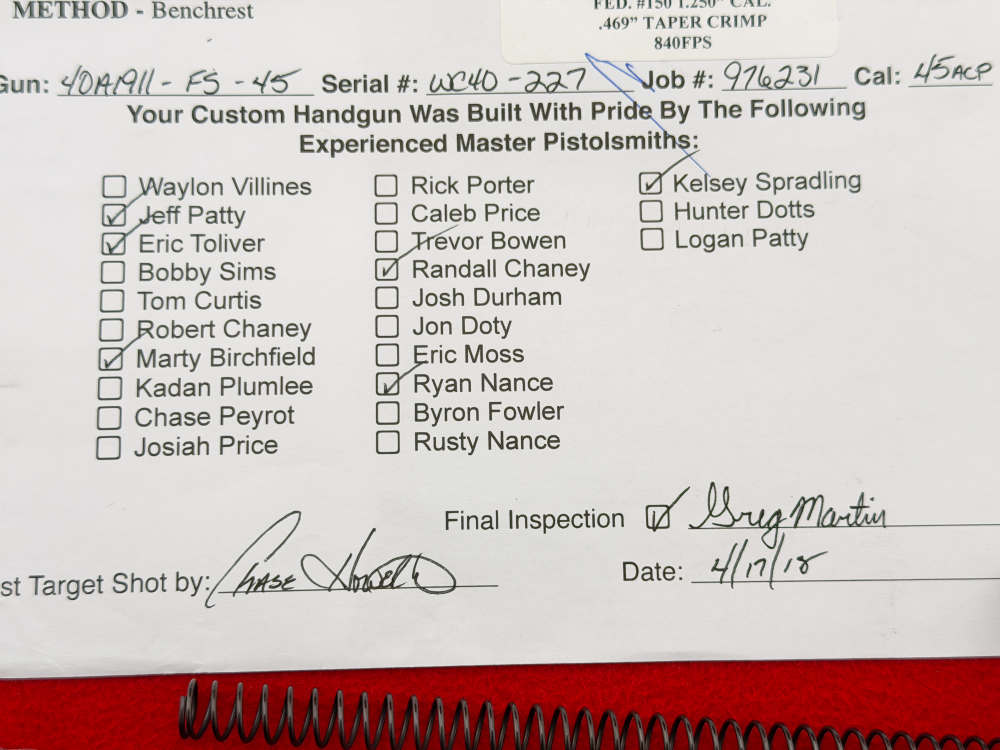 METHOD - Benchrest
FED. #150 1.250" CAL.
.469” TAPER CRIMP
840FPS
Gun: 40A1911-FS-45 Serial #: WC40-227 Job #: 976231 Cal: 45ACP
Your Custom Handgun Was Built With Pride By The Following
Experienced Master Pistolsmiths:
Waylon Villines
Jeff Patty
Eric Toliver
Bobby Sims
Tom Curtis
Robert Chaney
Marty Birchfield
Kadan Plumlee
Chase Peyrot
Josiah Price
Rick Porter
Caleb Price
Trevor Bowen
Randall Chaney
Josh Durham
Jon Doty
Eric Moss
Ryan Nance
Byron Fowler
Rusty Nance
Kelsey Spradling
Hunter Dotts
Logan Patty
Final Inspection Greg Martin
st Target Shot by: Chase Howell
Date: 4/17/18